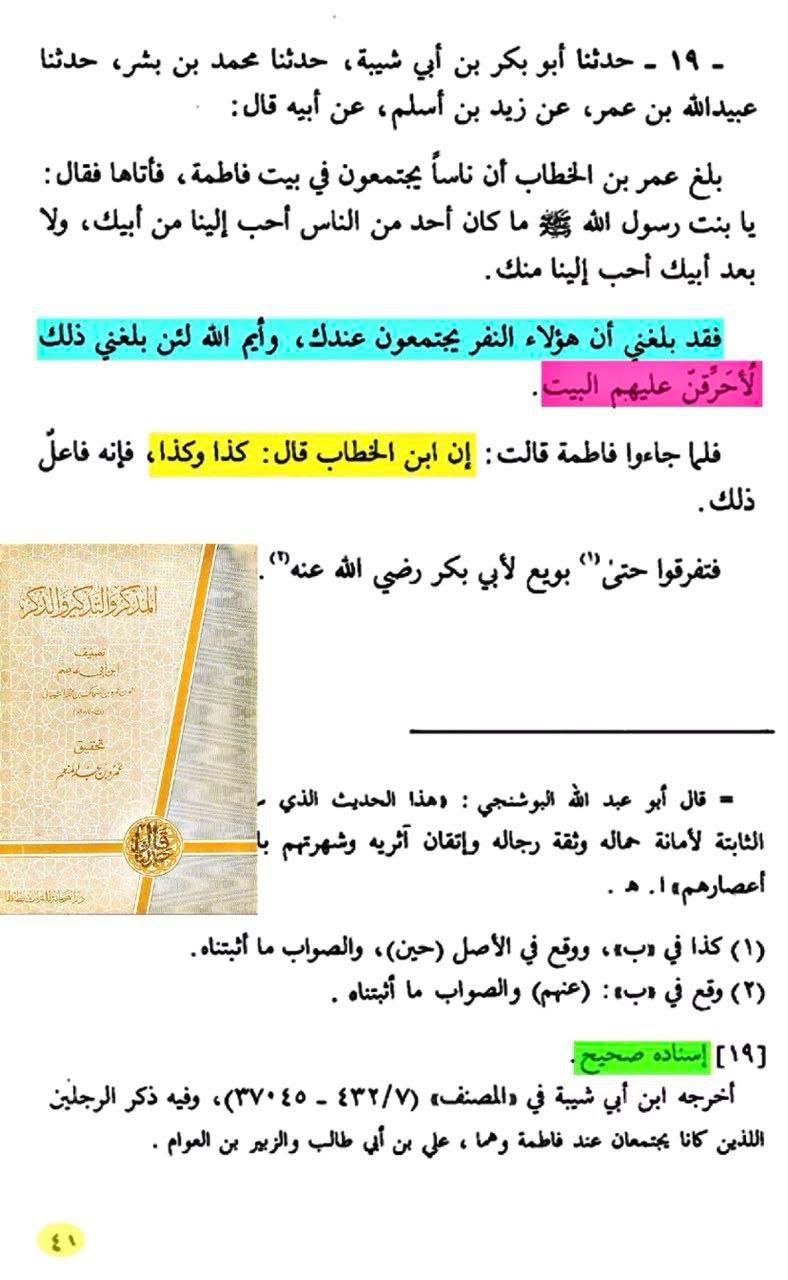 ـ ١٩ ـ حدثنا أبو بكر بن أبي شيبة، حدثنا محمد بن بشر، حدثنا
عبيدالله بن عمر، عن زيد بن أسلم، عن أبيه قال:
بلغ عمر بن الخطاب أن ناساً يجتمعون في بيت فاطمة، فأتاها فقال:
يا بنت رسول الله ﷺ ما كان أحد من الناس أحب إلينا من أبيك، ولا
بعد أبيك أحب إلينا منك.
فقد بلغني أن هؤلاء النفر يجتمعون عندك، وأيم الله لئن بلغني ذلك
لُأحَرِّقنّ عليهم البيت.
فلما جاءوا فاطمة قالت: إن ابن الخطاب قال: كذا وكذا، فإنه فاعلٌ
ذلك.
فتفرقوا حتىٰ(١) بويع لأبي بكر رضي الله عنه(٢).
المذكر والتذكير والذكر
تصنيف
ابن أبي عاصم
تحقيق
عمرو بن عبد المنعم
= قال أبو عبد الله البوشنجي: «هذا الحديث الذي
الثابتة لأمانة حماله وثقة رجاله وإتقان آثريه وشهرتهم
أعصارهم» ا. هـ.
(١) كذا في «ب»، ووقع في الأصل (حين)، والصواب ما أثبتناه.
(٢) وقع في «ب»: (عنهم) والصواب ما أثبتناه.
[١٩] إسناده صحيح.
أخرجه ابن أبي شيبة في «المصنف» (٤٣٢/٧ ـ ٣٧٠٤٥)، وفيه ذكر الرجلين
اللذين كانا يجتمعان عند فاطمة وهما، علي بن أبي طالب والزبير بن العوام.
٤١